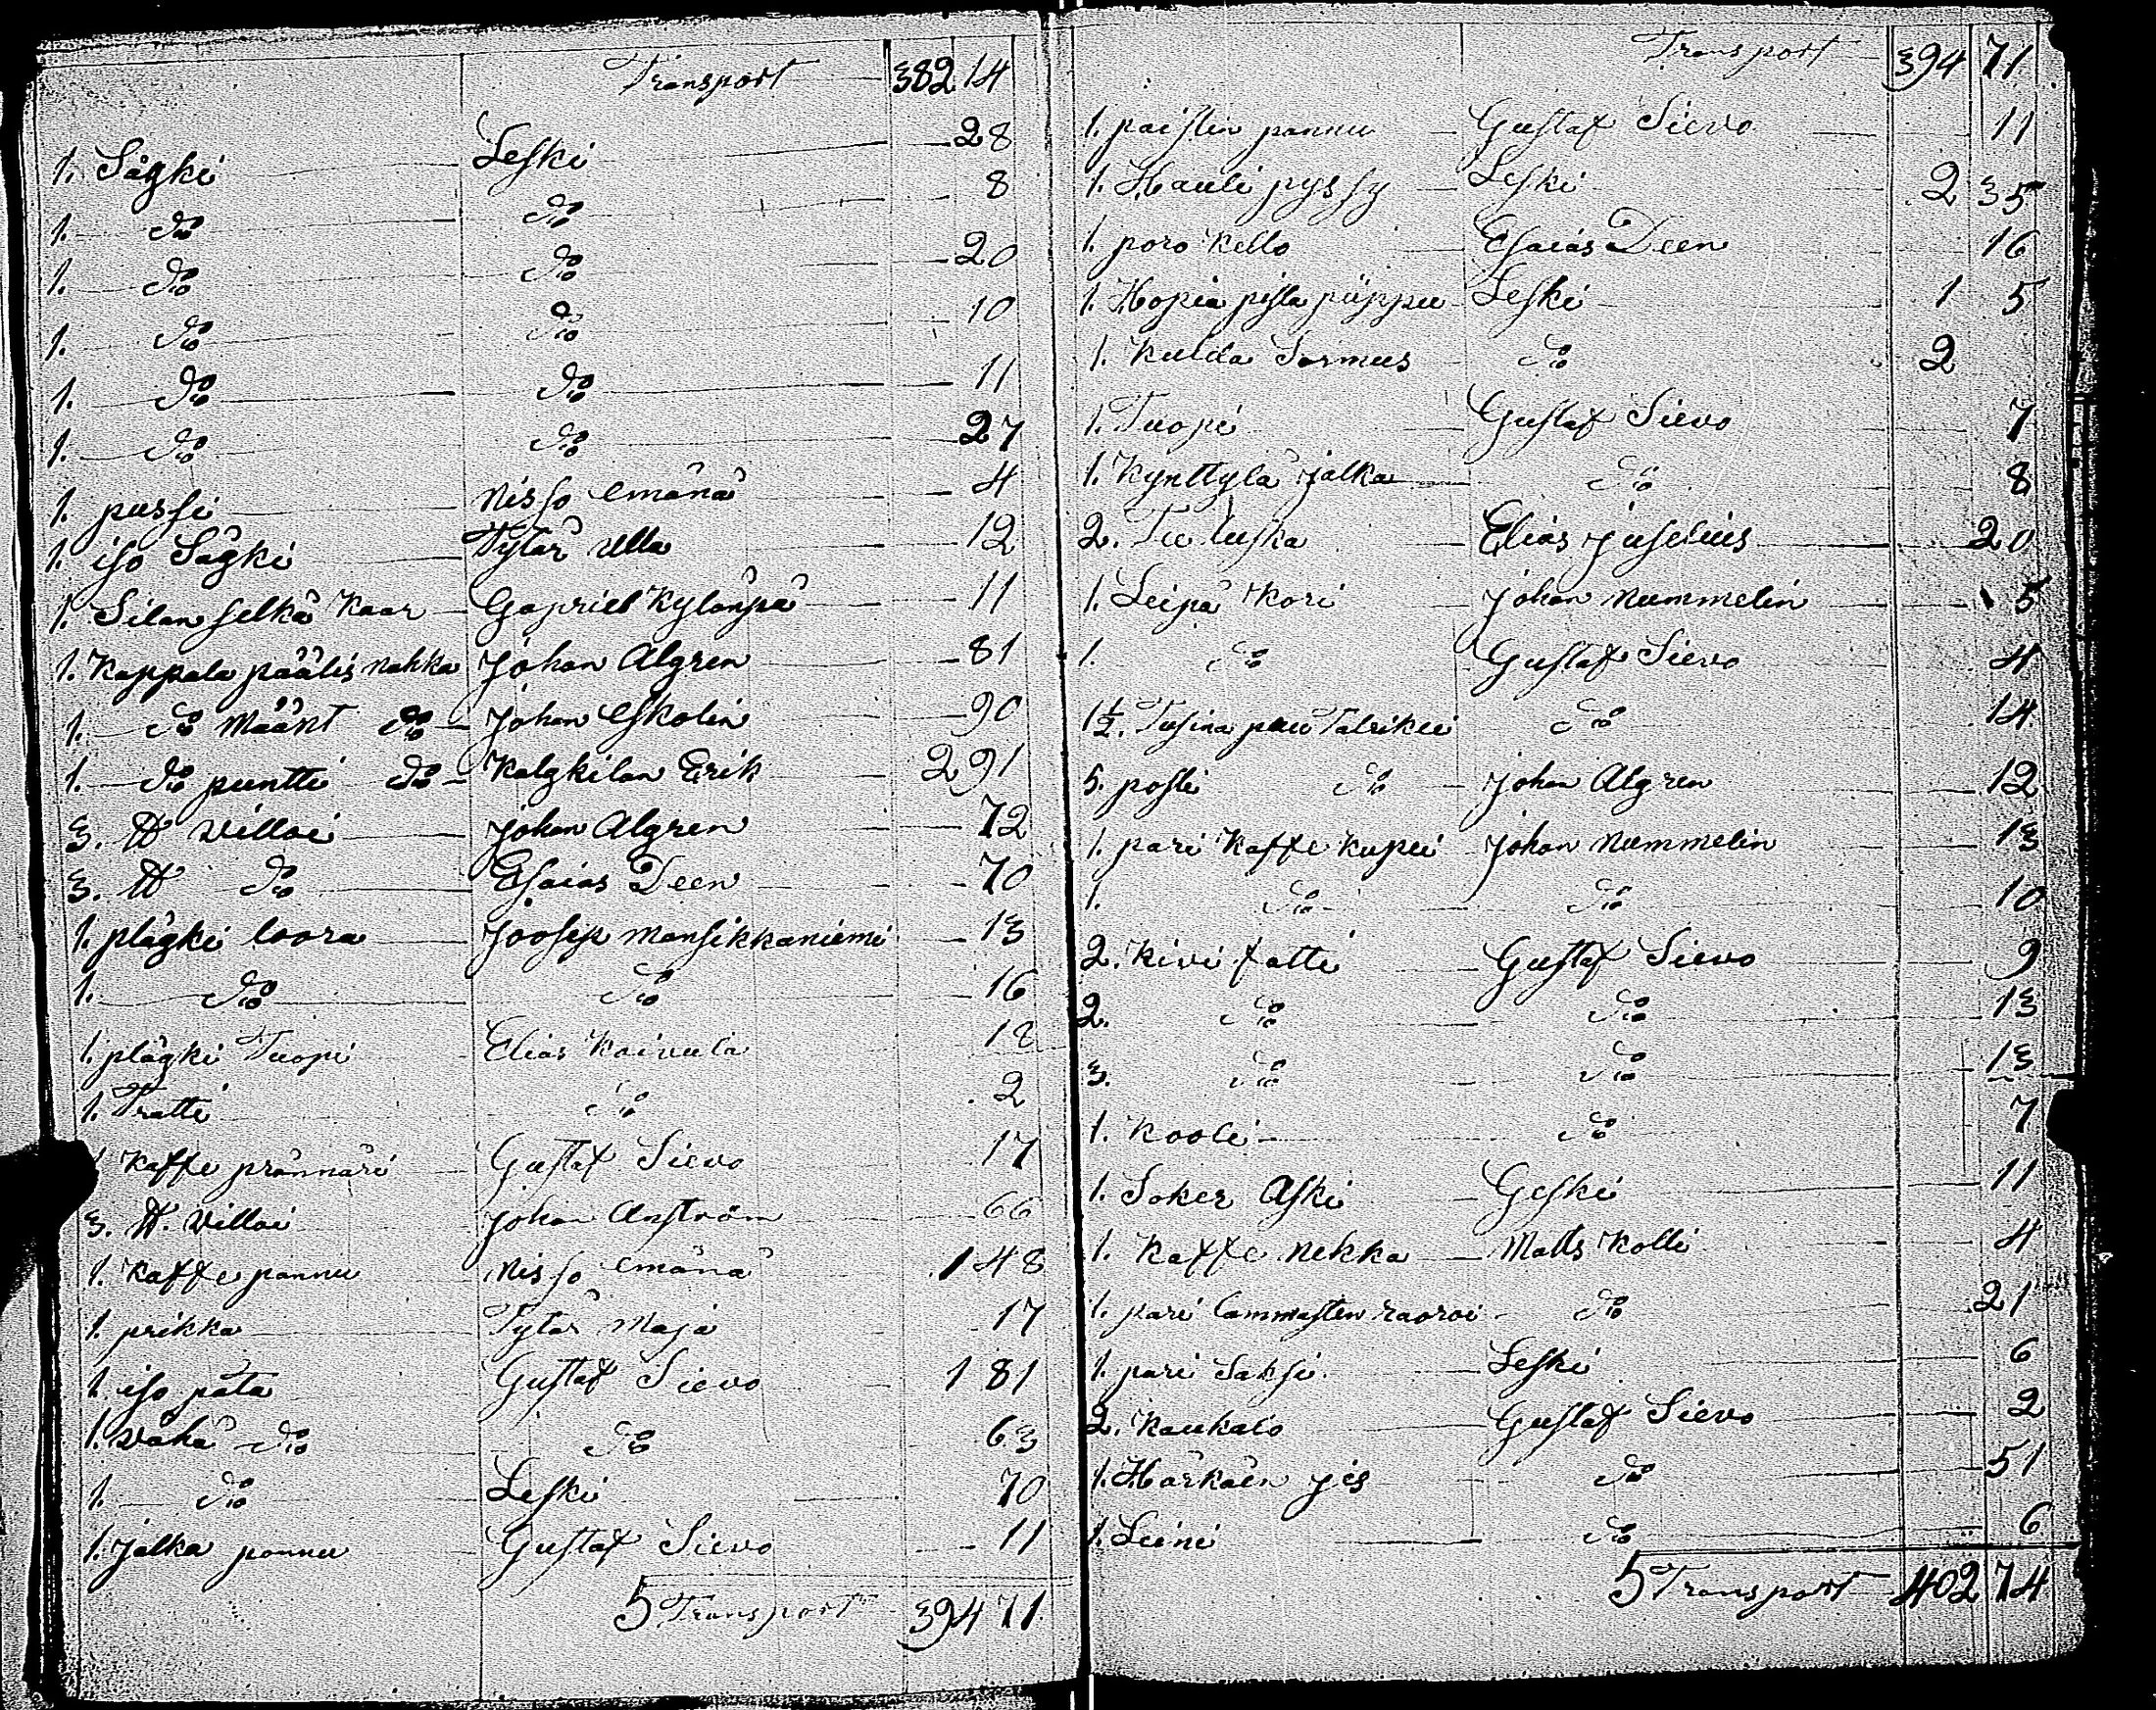 Transport 382 14
1. Sägki Leski 28
1. do do 8
1. do do 20
1. do do 10
1. do do 11
1. do do 27
1. pussi Nisso emänä 4
1. iso Sägki Tytär Ulla 12
1. Silan selkä Kaar Gapriel Kylänpä 11
1. Kappala päälis nahka Johan Algren 81
1. do määnt do Johan Eskolin 90
1. do puntti do Kalgkilan Erik 2 91
3. ℔ Villoi Johan Algren 72
3. ℔ do Esaias Deen 70
1. plägki loora Joosep Mansikkaniemi 13
1. do do 16
1. plägki Tuopi Elias Koivula 18
1. Tratti do 2
1 Kaffe prännäri Gustaf Sievo 17
3. ℔. Villoi Johan Anström 66
1. Kaffe pannu Nisso emänä 1 48
1. prikka Tytär Maja 17
1. iso pata Gustaf Sievo 1 81
1. Vähä do do 63
1. do Leski 70
1. jalka pannu Gustaf Sievo 11
5 Transport 394 71
Transport 394 71
1. paistin pannu Gustaf Sievo 11
1. Hauli pyssy Leski 2 35
1. poro Kello Esaias Deen 16
1. Hopia pista piippu Leski 1 5
1. Kulda Sormus do 2
1. Tuopi Gustaf Sievo 7
1. Kynttylä jalka do 8
2. Tu luska Elias Juselius 20
1. Leipä Kori Johan Nummelin 5
1. do Gustaf Sievo 4
1½. Tusina puu Talrikii do 14
5. posli do Johan Algren 12
1. pari Kaffe Kupii Johan Nummelin 13
1. do do 10
2. Kivi fatti Gustaf Sievo 9
2. do do 13
3. do do 13
1. Kooli do 7
1. Soker Aski Geski 11
1. Kaffe Nekka Matts Kolli 4
1. pari lammasten raoroi do 21
1. pari Saksi Leski 6
2. Kaukalo Gustaf Sievo 2
1. Härkäin jes do 51
1. Leini do 6
5 Transport 402 74